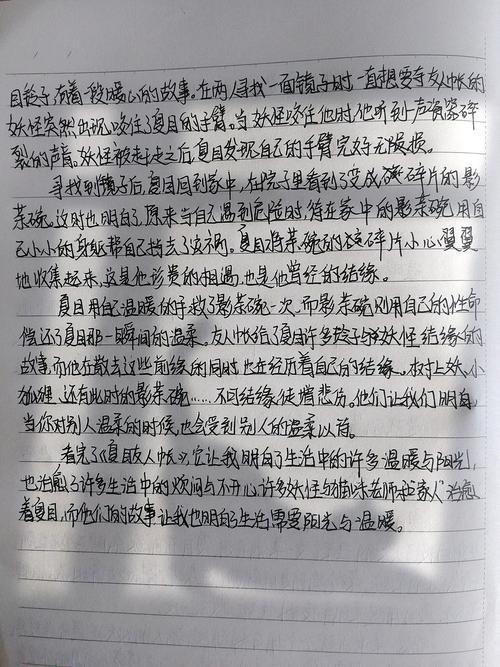 目玲子有着一段暖心的故事。在两人寻找一面镜子时,一直想要夺友人帐的
妖怪突然出现,咬住了夏目的手臂。当妖怪咬住他时,他听到一声瓷器碎
裂的声音。妖怪被赶走之后,夏目发现自己的手臂完好无损。
寻找到镜子后,夏目回到家中,在院子里看到了变成碎片的影
茶碗。这时他明白了,原来当自己遇到危险时,待在家中的影茶碗用自
己小小的身躯帮自己挡去了灾祸。夏目将茶碗的碎片小心翼翼
地收集起来,这是他珍贵的相遇,也是他曾经的结缘。
夏目用自己温暖的手救了影茶碗一次,而影茶碗则用自己的性命
偿还了夏目那一瞬间的温柔。友人帐给了夏目许多玲子与妖怪结缘的
故事,而他在散去这些前缘的同时,也在经历着自己的结缘。树上妖、小
狐狸,还有此时的影茶碗……不同结缘,徒增悲伤。他们让我们明白,
当你对别人温柔的时候,也会受到别人的温柔以待。
看完了《夏目友人帐》,它让我明白了生活中的许多温暖与阳光,
也治愈了许多生活中的烦闷与不开心,许多妖怪与猫咪老师和家人治愈
着夏目,而他们的故事让我也明白了生活需要阳光与温暖。